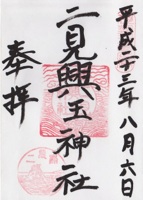 平成二十三年八月六日
二見興玉神社
奉拝